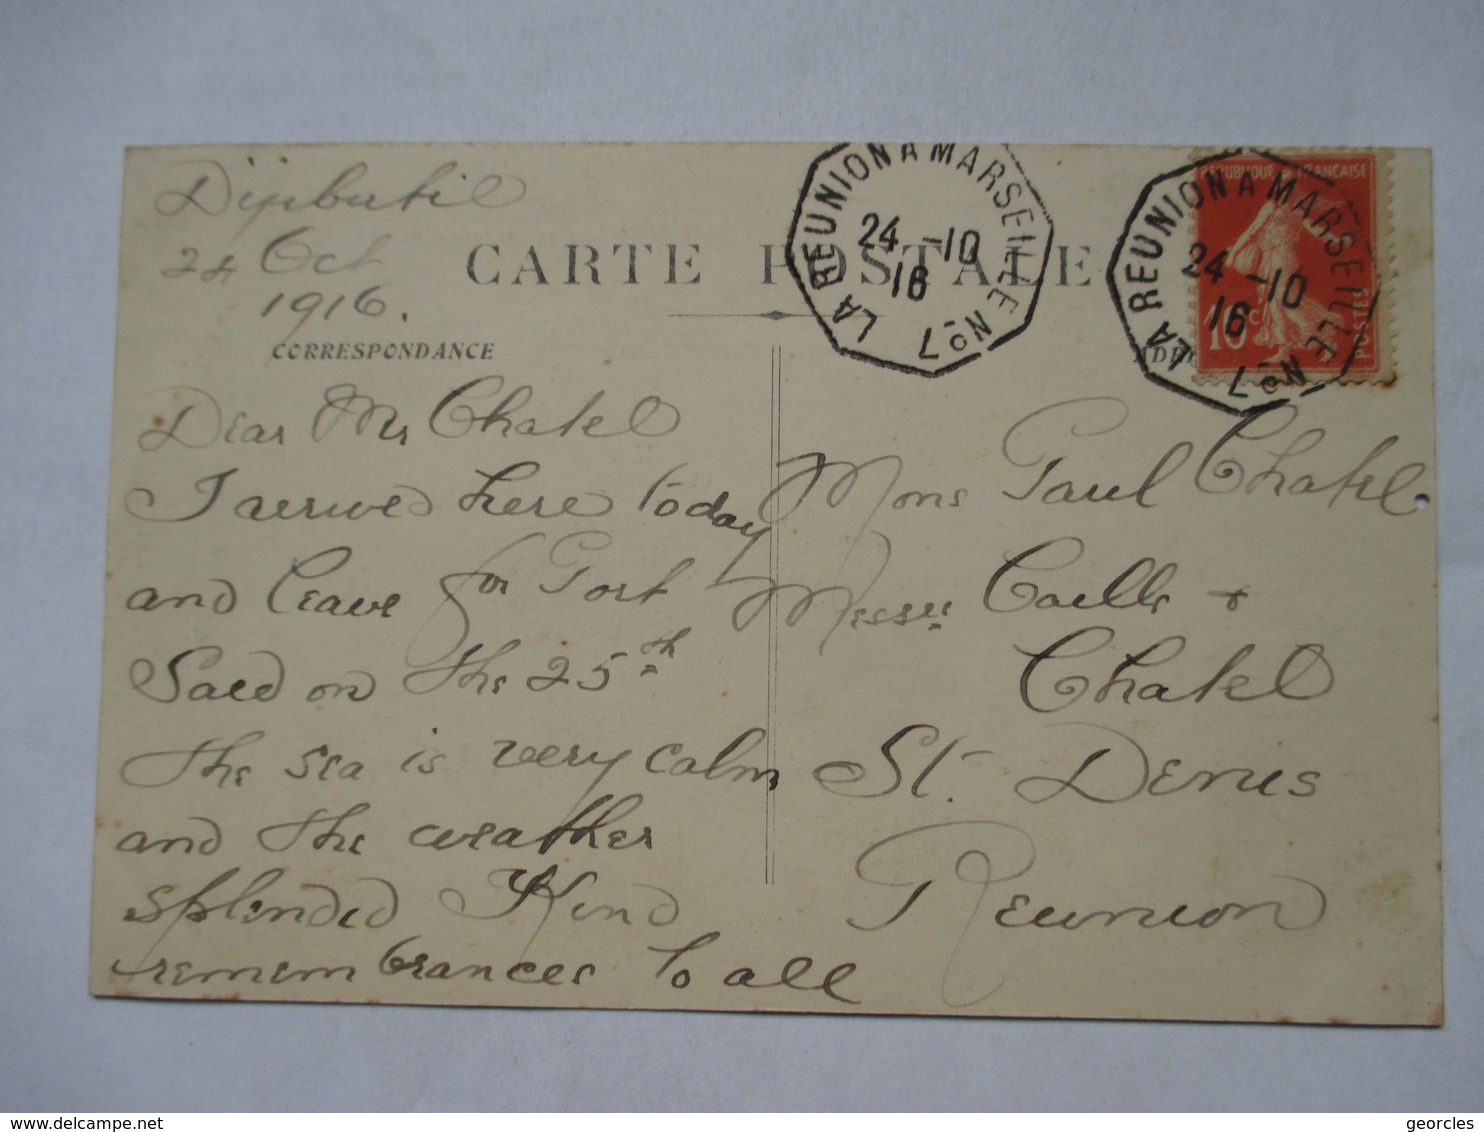 Djibutil
24 Oct
1916.
CARTE POSTALE
CORRESPONDANCE
Dear Mr Chatel
I arrived here today
and leave for Port
Said on the 25th
the sea is very calm
and the weather
splendid Kind
remembrances to all
LA REUNION A MARSEILLE No 7
24 -10
16
LA REUNION A MARSEILLE No 7
24 -10
16
REPUBLIQUE FRANÇAISE
10c
POSTES
Mons Paul Chatel
Messrs Caille +
Chatel
St. Denis
Reunion
delcampe.net
georcles